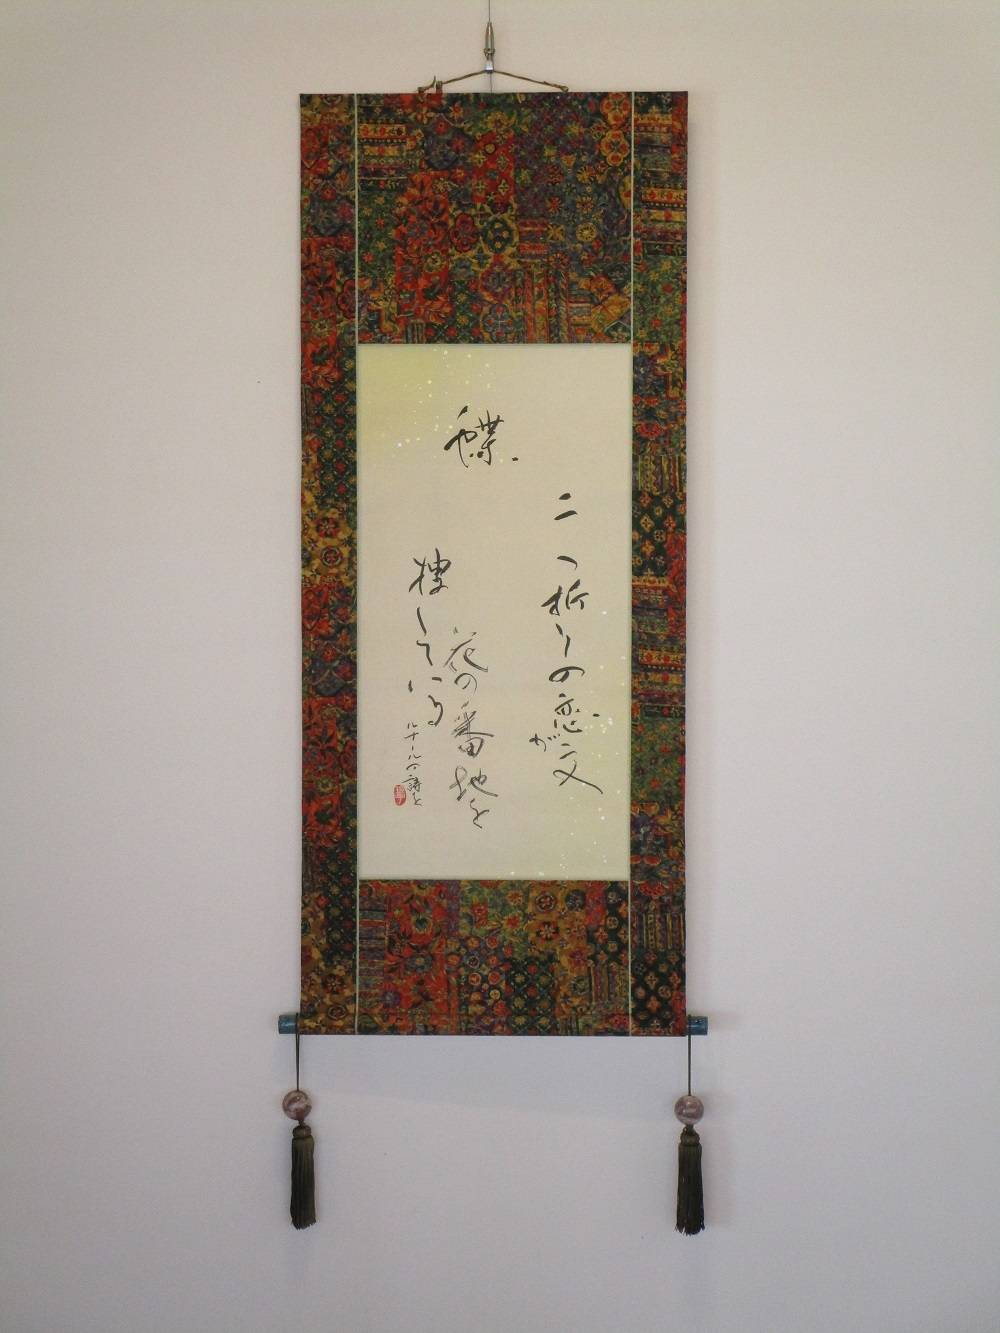 蝶
二つ折りの恋文が
花の番地を
捜している
ルナールの詩を